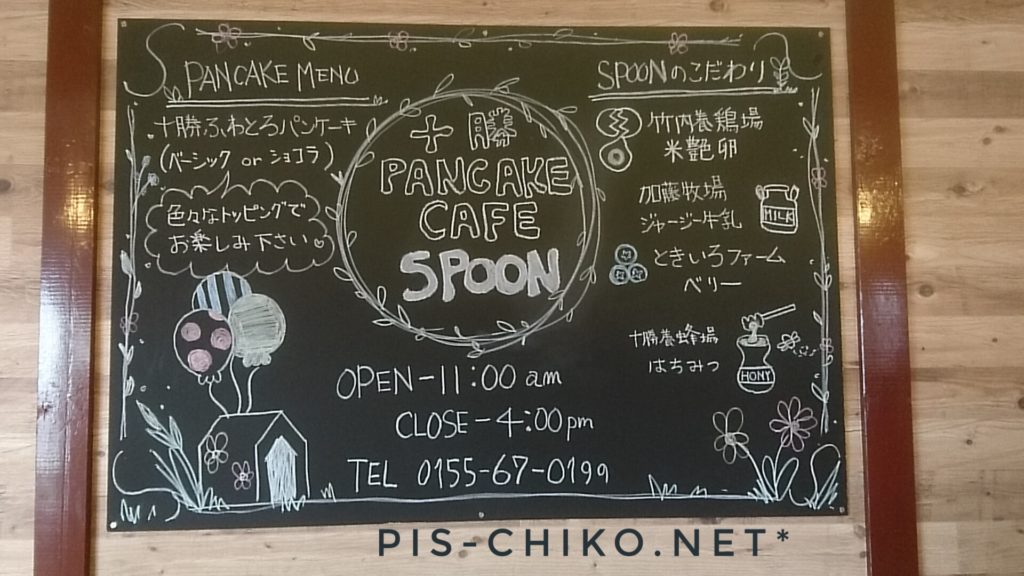 PANCAKE MENU
十勝ふわとろパンケーキ
(ベーシック or ショコラ)
色々なトッピングで
お楽しみ下さい♡
十勝
PANCAKE
CAFE
SPOON
OPEN-11:00 am
CLOSE-4:00pm
TEL 0155-67-0199
SPOONのこだわり
竹内養鶏場
米艶卵
加藤牧場
ジャージー牛乳
MILK
ときいろファーム
ベリー
十勝養蜂場
はちみつ
HONY
PIS-CHIKO.NET*